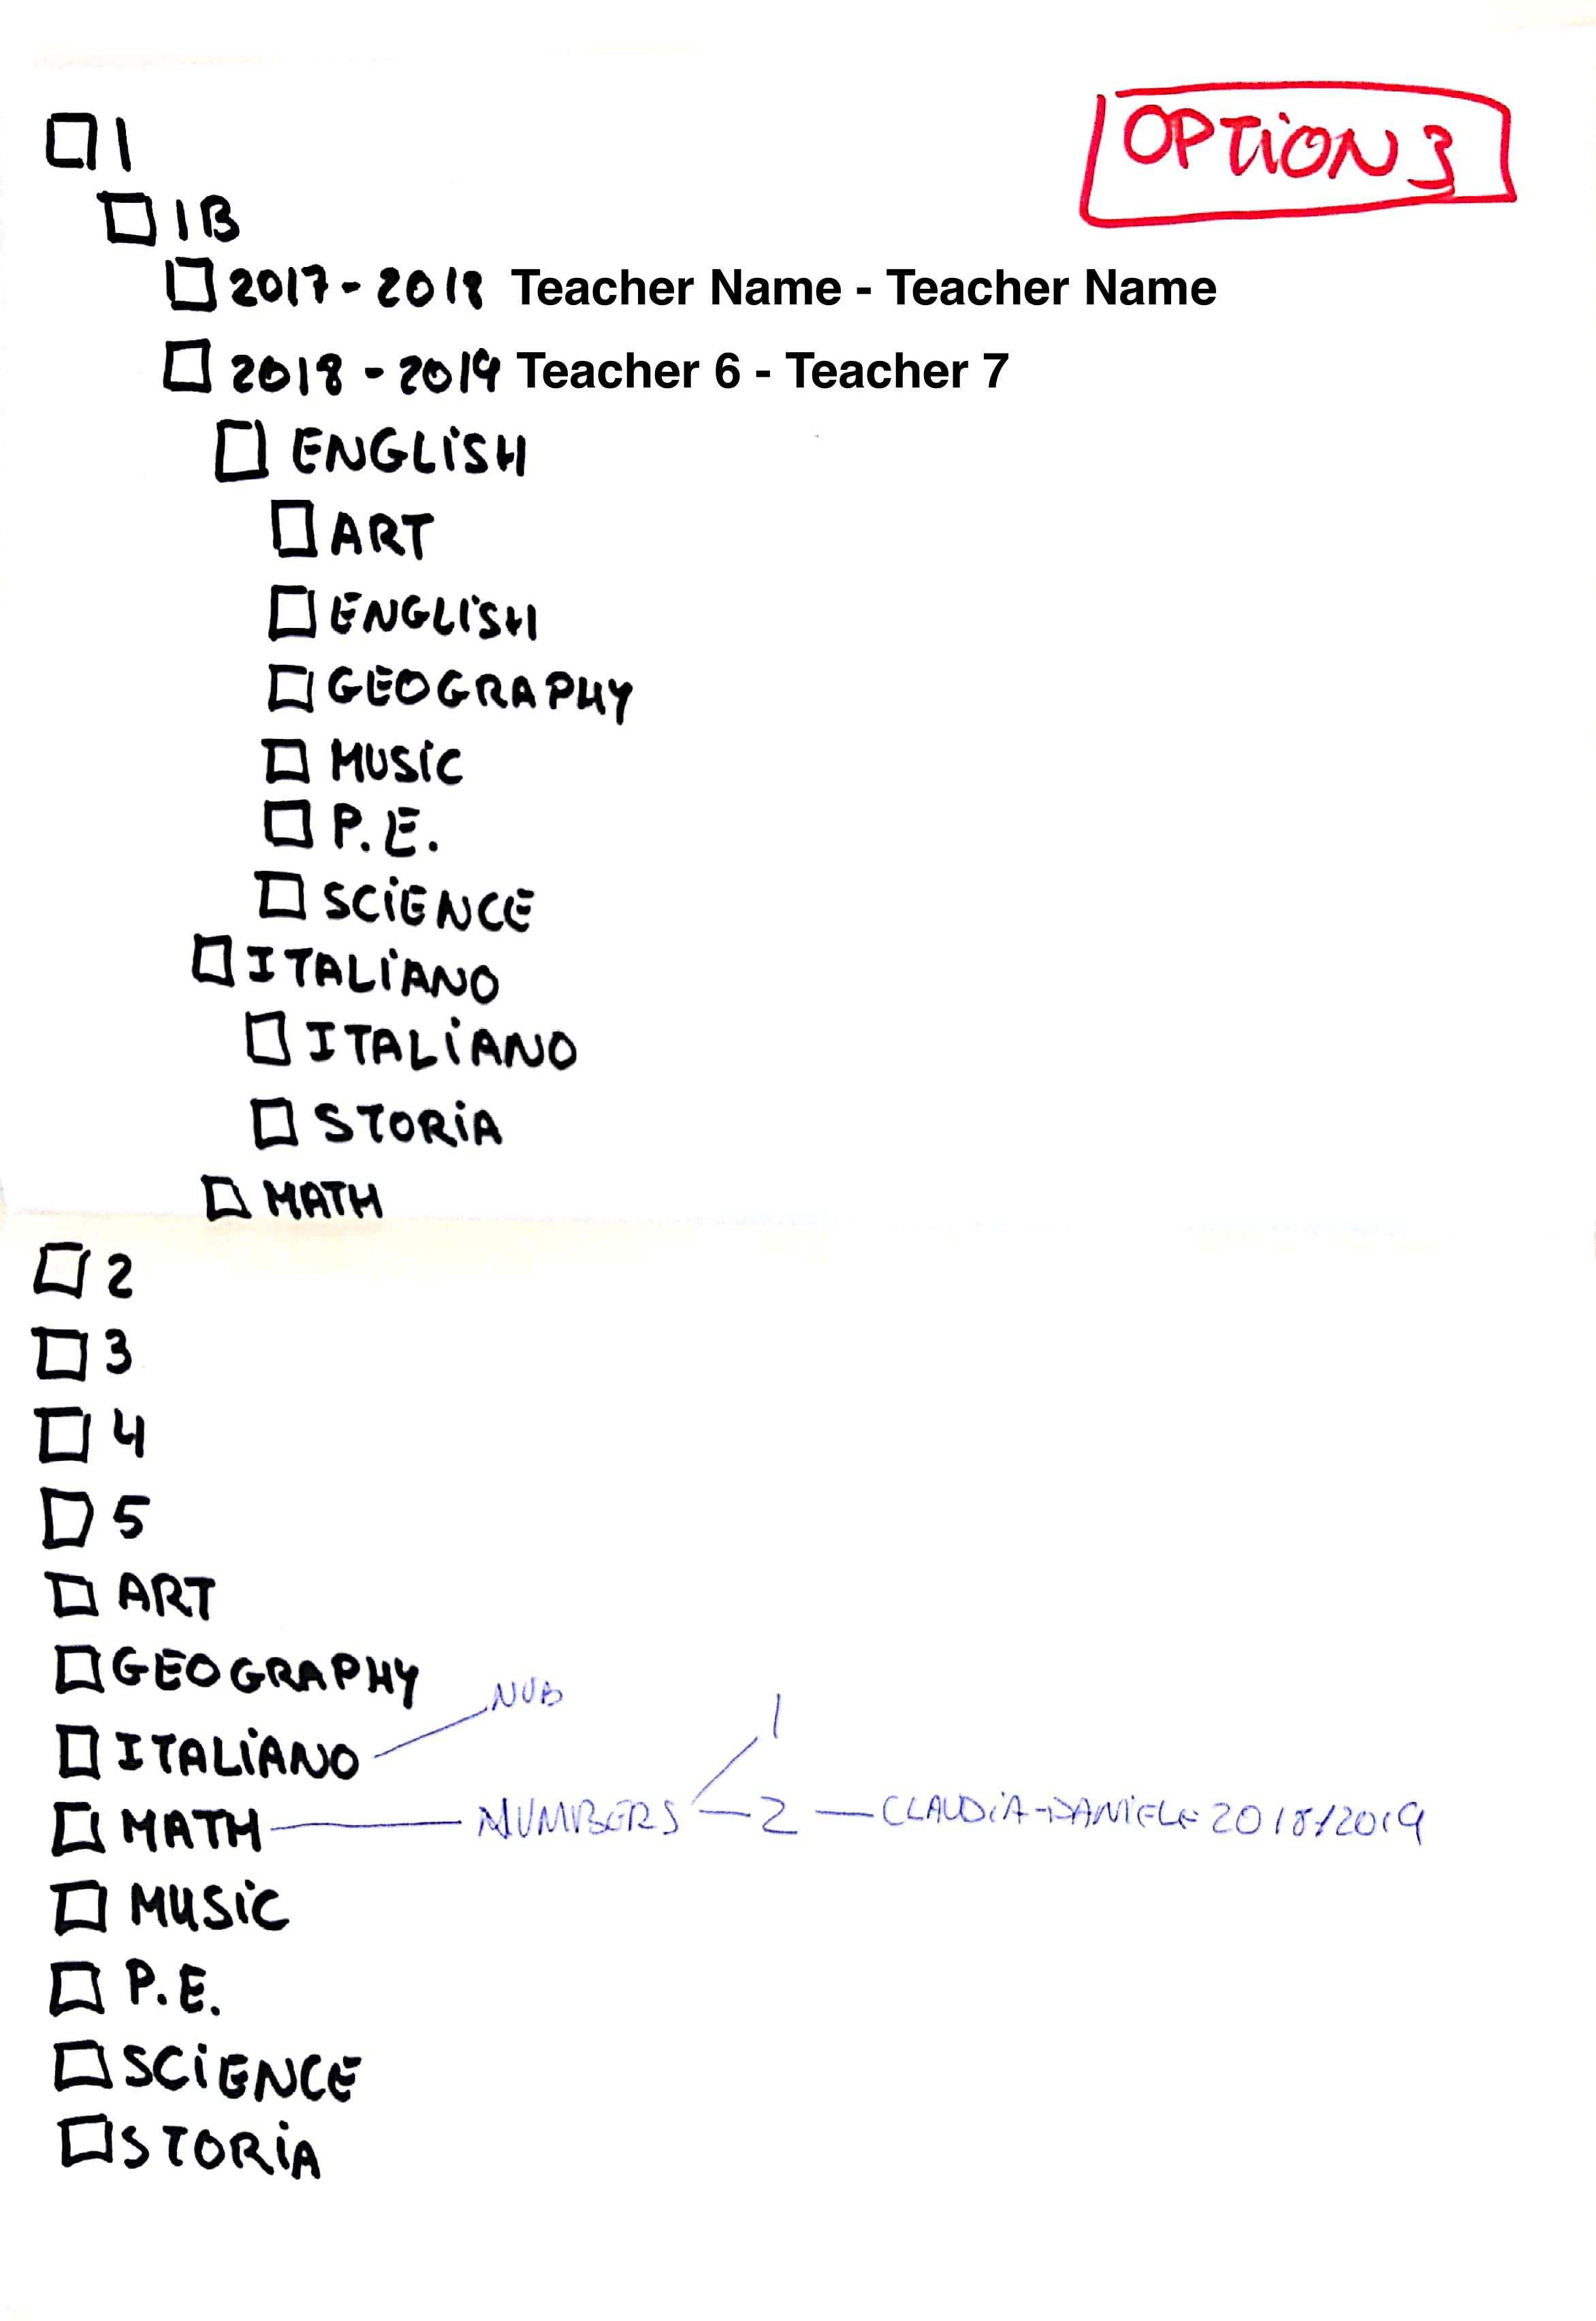 OPTION 3
1
1B
2017-2018 Teacher Name - Teacher Name
2018-2019 Teacher 6 - Teacher 7
ENGLISH
ART
ENGLISH
GEOGRAPHY
MUSIC
P.E.
SCIENCE
ITALIANO
ITALIANO
STORIA
MATH
2
3
4
5
ART
GEOGRAPHY
ITALIANO
1
MATH NUMBERS 2 CLAUDIA-DANIELE 2018/2019
MUSIC
P.E.
SCIENCE
STORIA